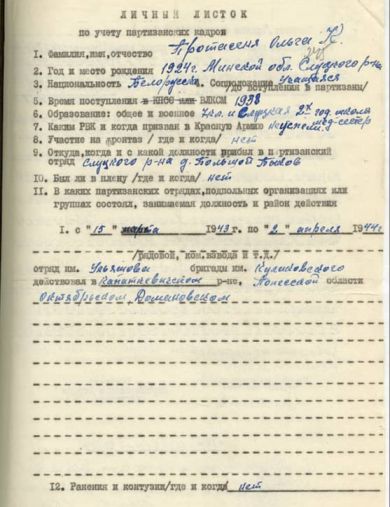 ЛИЧНЫЙ ЛИСТОК
по учету партизанских кадров
1. Фамилия, имя, отчество Протасеня Ольга К.
2. Год и место рождения 1924г. Минской обл. Слуцкого р-на
3. Национальность Белорусска 4. Соцположение учащаяся
/до вступления в партизаны/
5. Время поступления в КПСС или ВЛКСМ 1938
6. Образование: общее и военное 7кл. и Слуцкая 2х год. школа
мед-сестер
7. Каким РВК и когда призван в Красную Армию
8. Участие на фронтах / где и когда/ нет
9. Откуда, когда и с какой должности прибыл в партизанский
отряд Слуцкого р-на д. Большой
10. Был ли в плену /где и когда/ нет
11. В каких партизанских отрядах, подпольных организациях или
группах состоял, занимаемая должность и район действия
1. с "15" марта 1943 г. по "2" апреля 1944г
/рядовой, ком. взвода и т.д./
отряд им. бригады им. Куликовского
действовал в р-не, Полесской области
Октябрьском Домановском
12. Ранения и контузии/где и когда/ нет